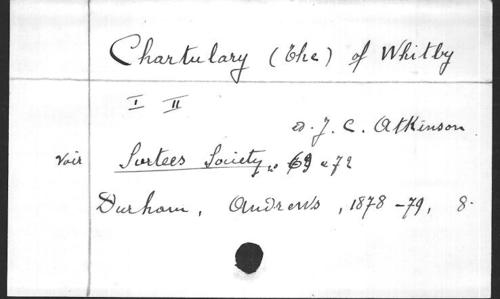 Chartulary (the) of Whitby
I II
ed. J. C. Atkinson
Voir Surtees Society, 69 & 72
Durham, Andrews, 1878-79, 8°